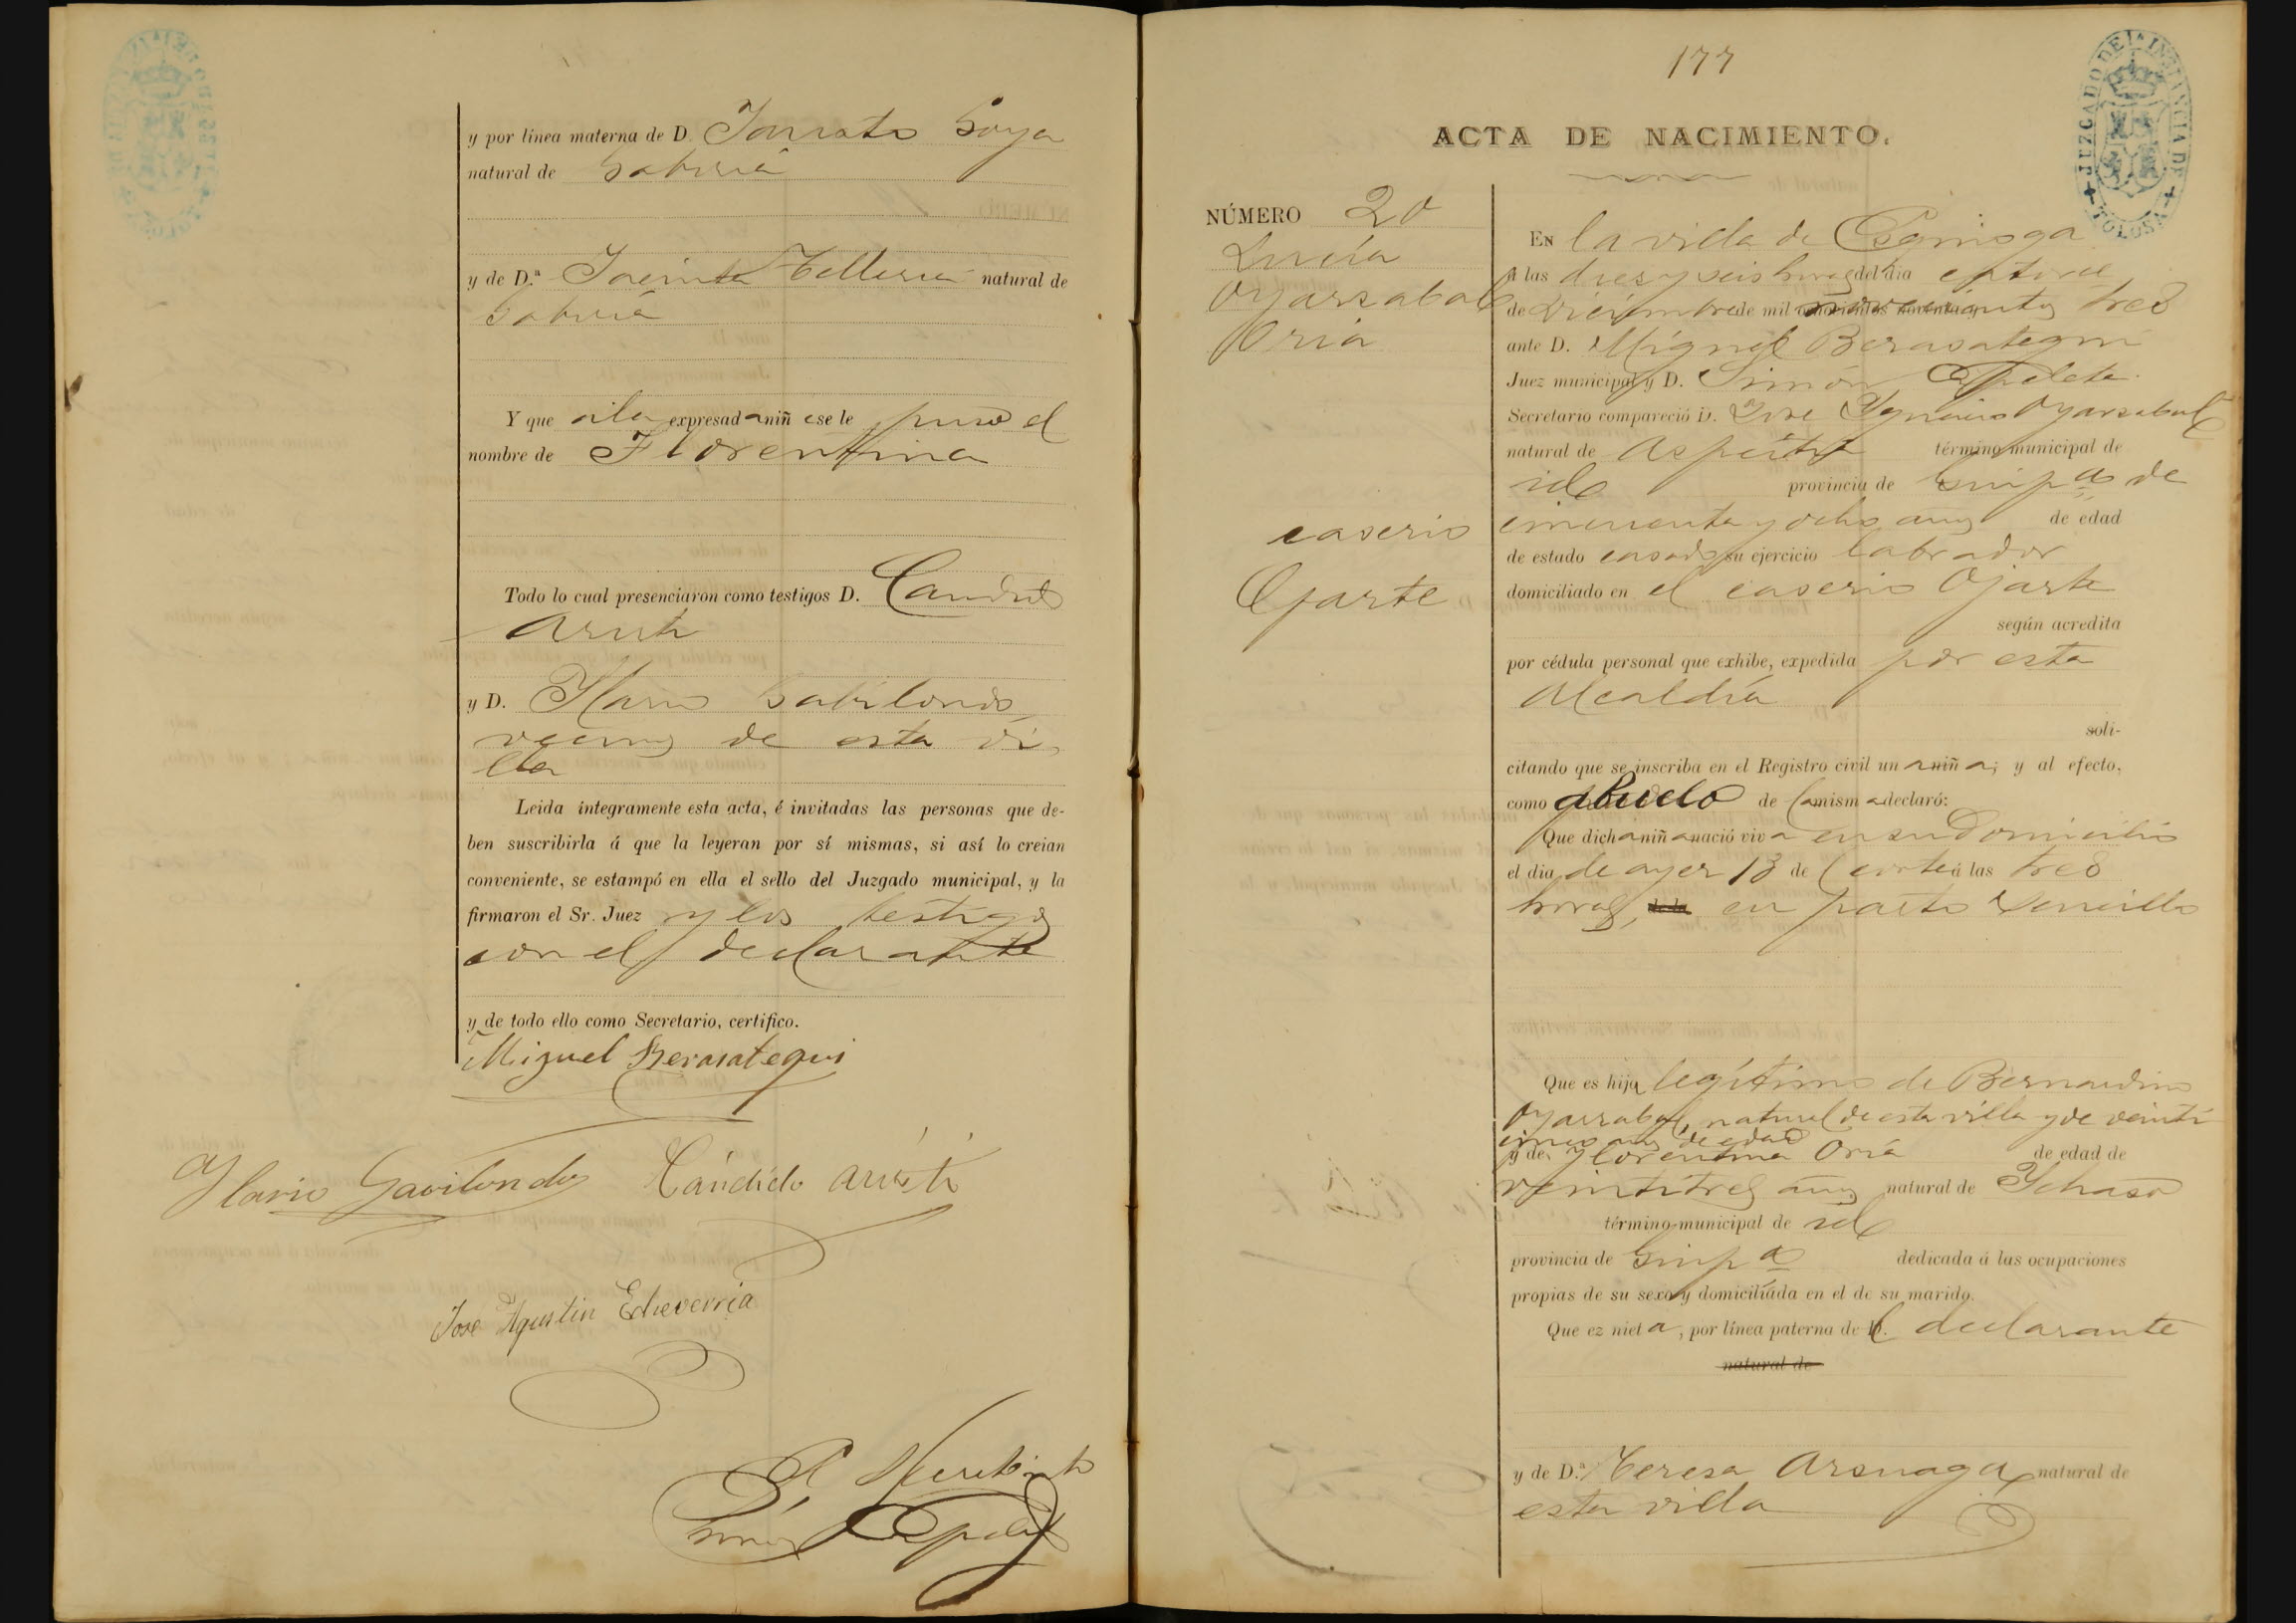 y por línea materna de D. Goya
natural de Gabiria
y de D.ª Jacinta Telleria natural de
Gabiria
Y que á la expresada niñ ese le puso el
nombre de Florentina
Todo lo cual presenciaron como testigos D. Candido
Aristi
y D. Ilario Gabilondo
vecinos de esta vi-
lla
Leida íntegramente esta acta, é invitadas las personas que de-
ben suscribirla á que la leyeran por sí mismas, si así lo creian
conveniente, se estampó en ella el sello del Juzgado municipal, y la
firmaron el Sr. Juez y los testigos
con el declarante
y de todo ello como Secretario, certifico.
Miguel Berasategui
Ylario Gavilondo Cándido Aristi
José Agustin Echeverria
177
ACTA DE NACIMIENTO.
JUZGADO DE 1ª INSTANCIA DE TOLOSA
NÚMERO 20
Lucía
Oyarzabal
Oria
caserio
Ojarte
EN la villa de Ezquioga
á las diez y seis horas del dia catorce
de Diciembre de mil novecientos tres
ante D. Miguel Berasategui
Juez municipal y D. Simón Apeleta
Secretario compareció D. José Ygnacio Oyarzabal
natural de Aspeitia término municipal de
id provincia de Guipª de
cincuenta y ocho años de edad
de estado casado su ejercicio labrador
domiciliado en el caserio Ojarte
según acredita
por cédula personal que exhibe, expedida por esta
Alcaldía
soli-
citando que se inscriba en el Registro civil una niña; y al efecto,
como abuelo de la misma declaró:
Que dicha niña nació viva en su domicilio
el dia de ayer 13 de corte á las tres
horas, en parto sencillo
Que es hija legítima de Bernardino
Oyarzabal, natural de esta villa y de veinti
cinco años de edad
y de Florentina Oria de edad de
veintitres años natural de Ychaso
término municipal de id
provincia de Guipª dedicada á las ocupaciones
propias de su sexo y domiciliada en el de su marido.
Que ez nieta, por línea paterna del declarante
natural de
y de D.ª Teresa Arsuaga natural de
esta villa